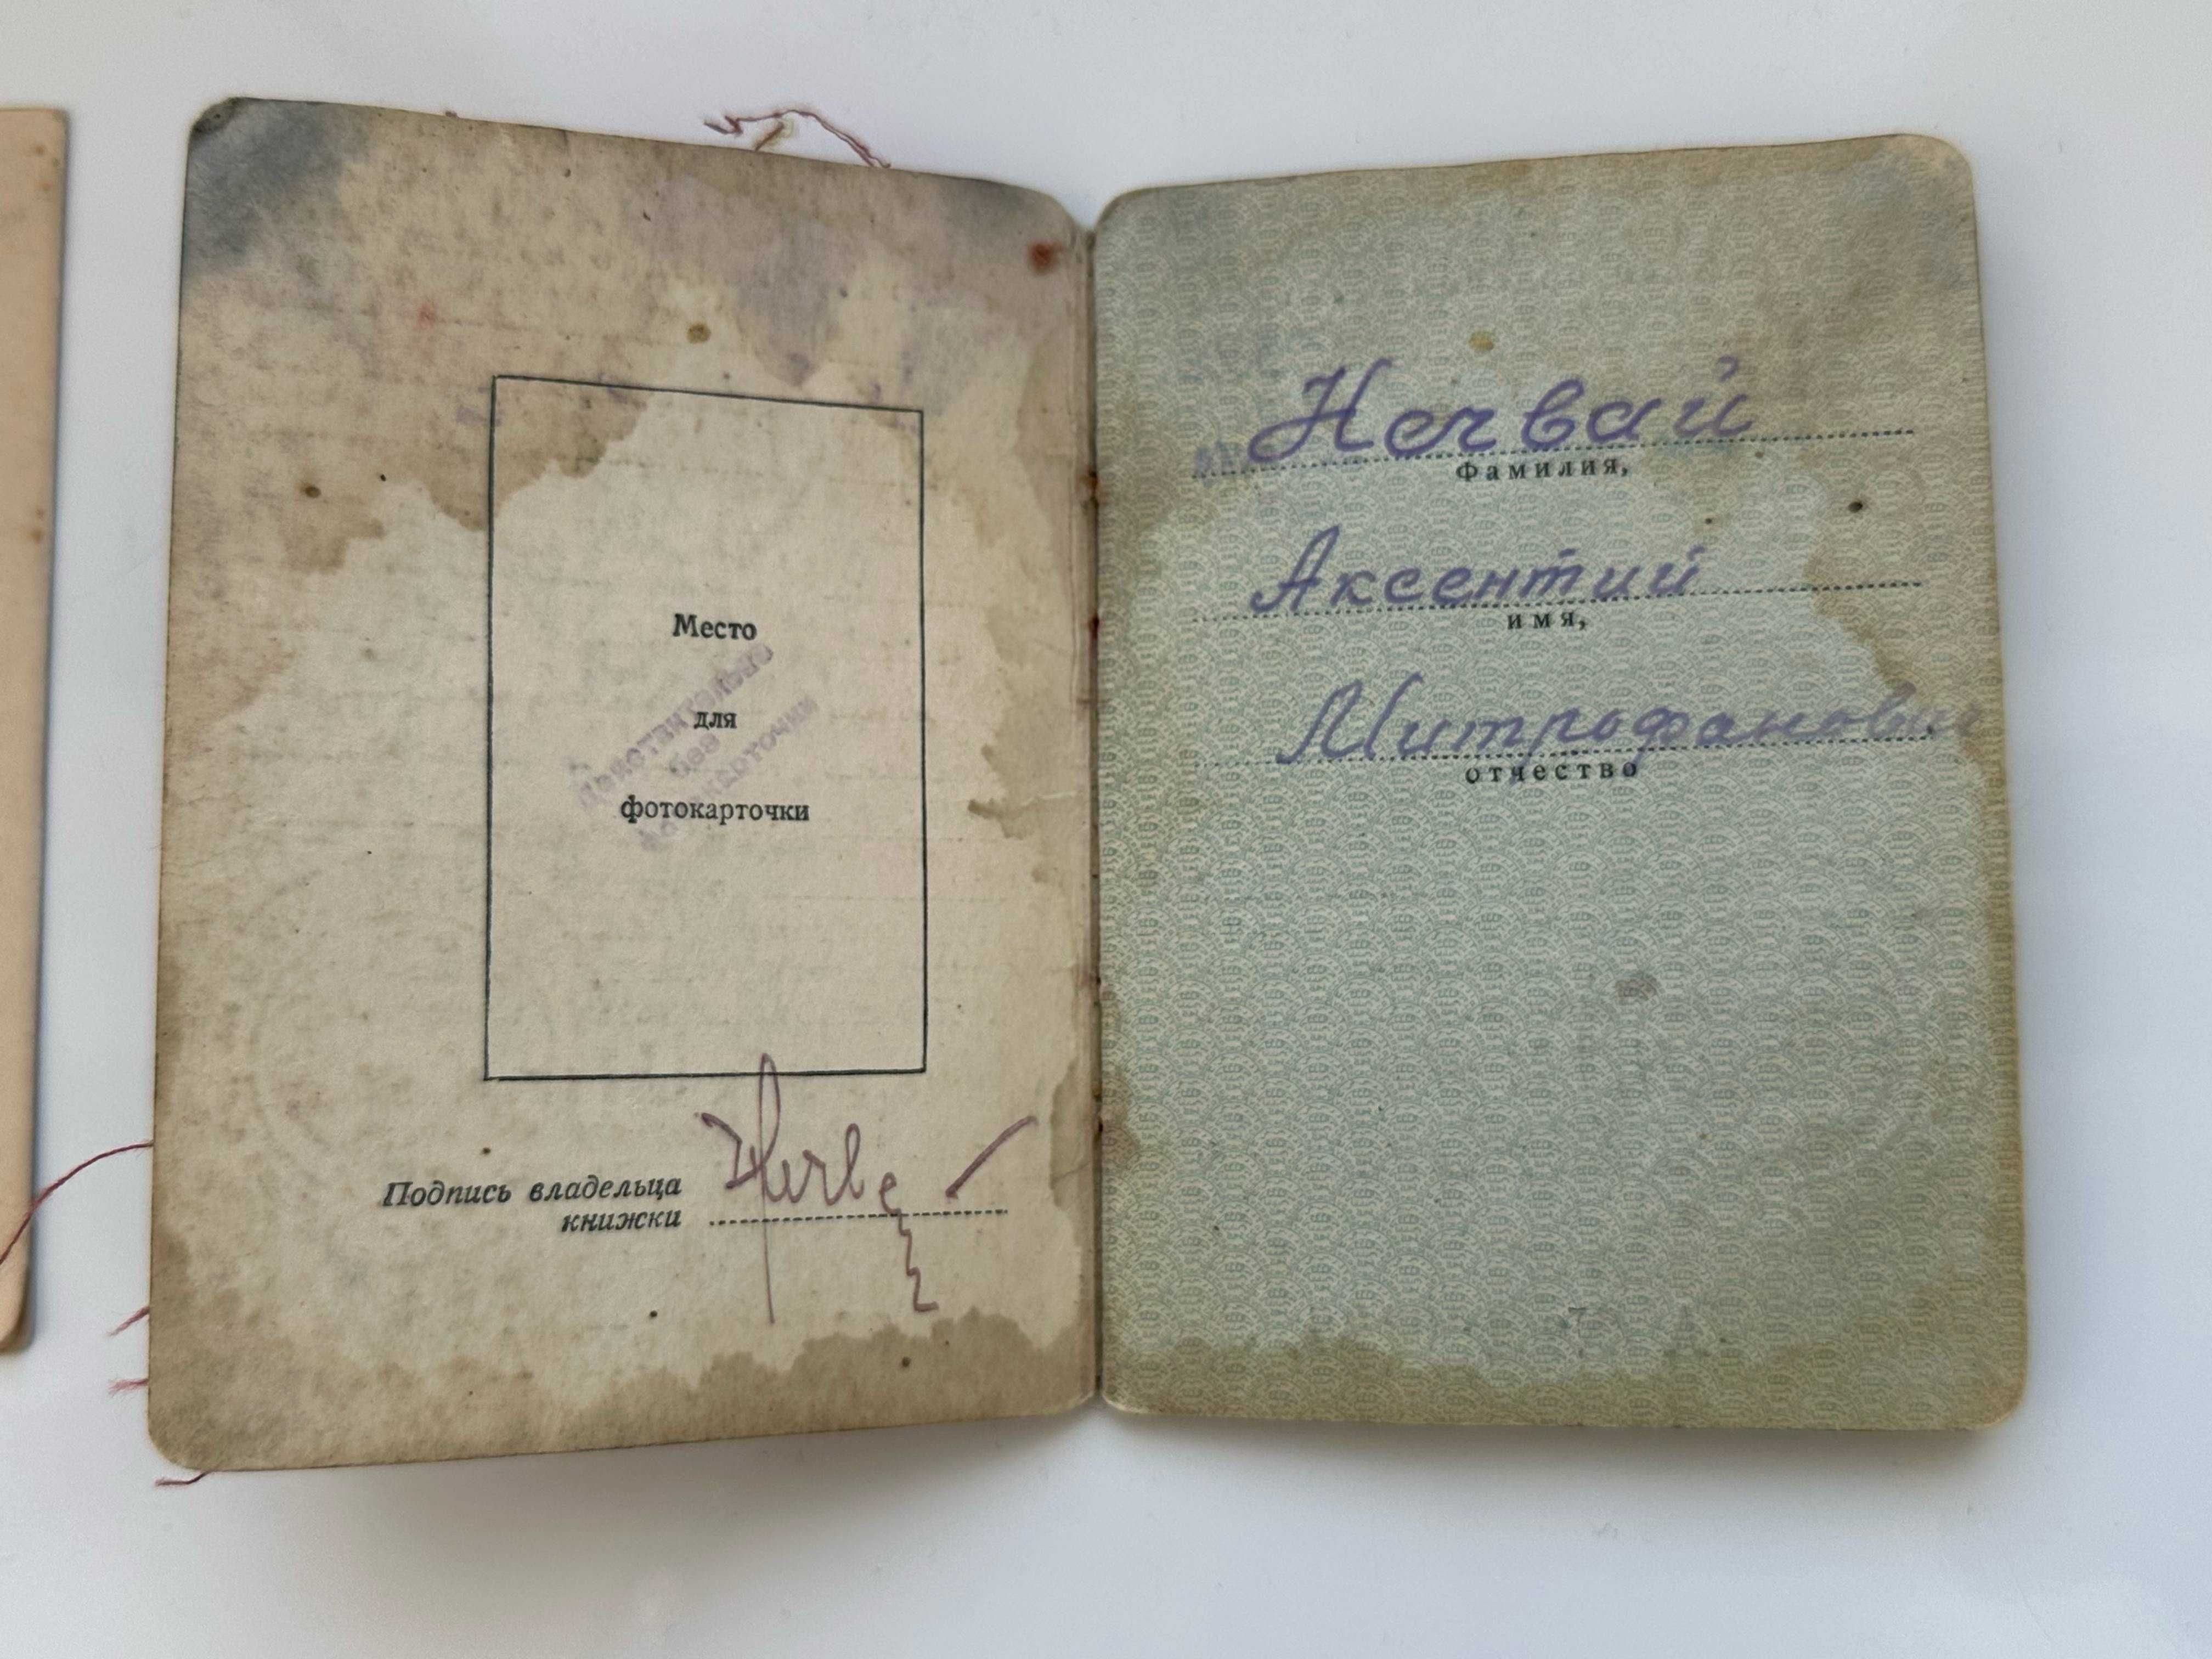 Место
для
фотокарточки
Действительно
без
фотокарточки
Подпись владельца
книжки
Нечвай
Фамилия,
Аксентий
имя,
Митрофанович
отчество